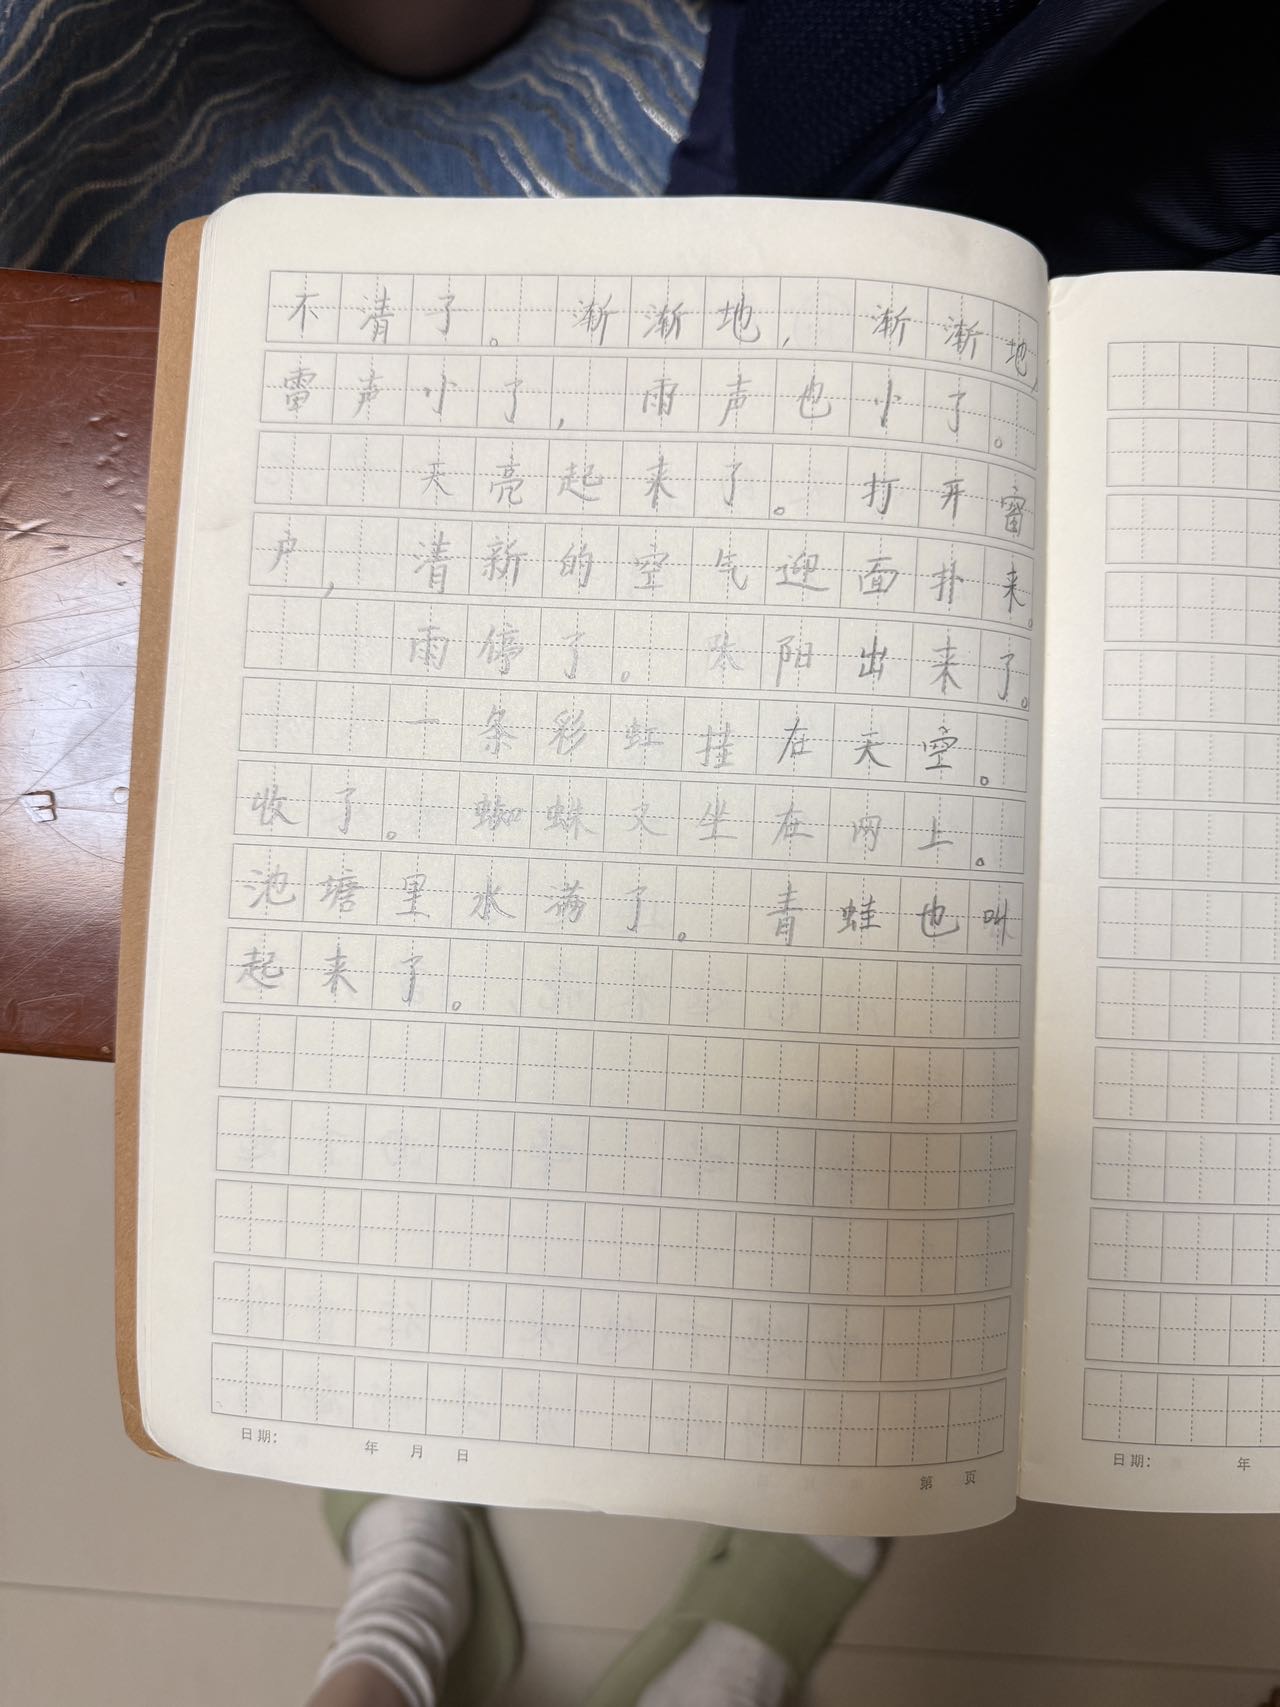 不清了。渐渐地，渐渐地，
雷声小了，雨声也小了。
天亮起来了。打开窗
户，清新的空气迎面扑来。
雨停了。太阳出来了。
一条彩虹挂在天空。
收了。蜘蛛又坐在网上。
池塘里水满了。青蛙也叫
起来了。
日期： 年 月 日
第 页
日期： 年